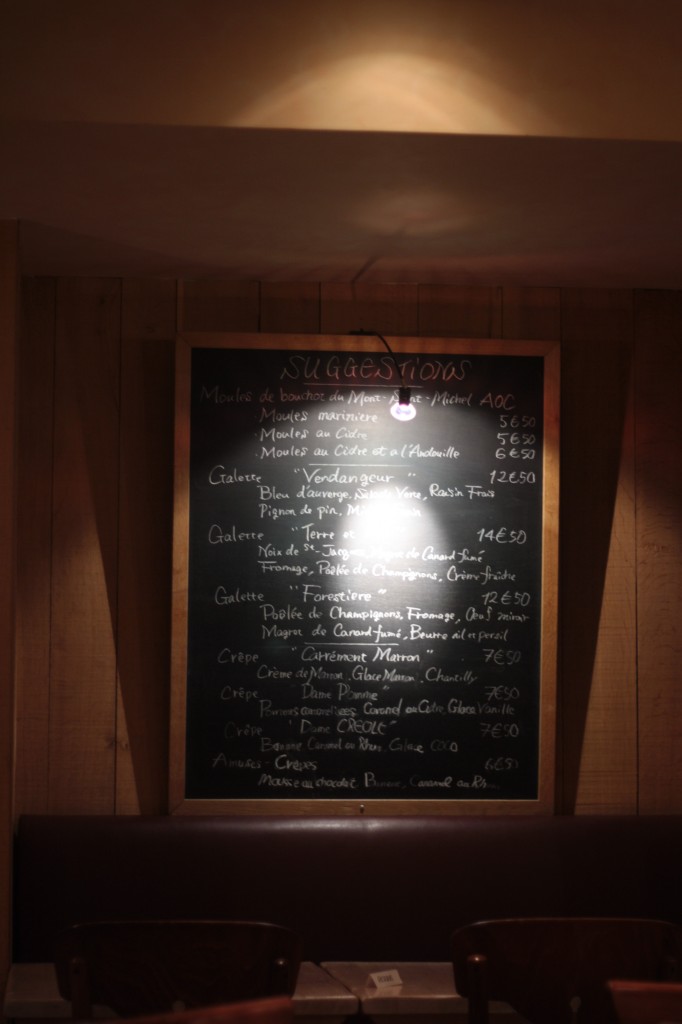 SUGGESTIONS
Moules de bouchot du Mont-Saint-Michel AOC
Moules marinière 5€50
Moules au Cidre 5€50
Moules au Cidre et a l'Andouille 6€50
Galette "Vendangeur" 12€50
Bleu d'auverge, Verte, Raisin Frais
Pignon de pin,
Galette "Terre et 14€50
Noix de St-Jacques, de Canard fumé
Fromage, Poêlée de Champignons, Crème fraîche
Galette "Forestiere" 12€50
Poêlée de Champignons, Fromage, Oeuf miroir
Magret de Canard fumé, Beurre ail et persil
Crêpe "Carrément Marron" 7€50
Crème de Marron, Glace Marron, Chantilly
Crêpe "Dame Pomme" 7€50
Pommes caramelisées, Caramel au Cidre, Glace Vanille
Crêpe "Dame CREOLE" 7€50
Banane, Caramel au Rhum, Glace COCO
Amuses-Crêpes 6€50
Mousse au chocolat, Banane, Caramel au